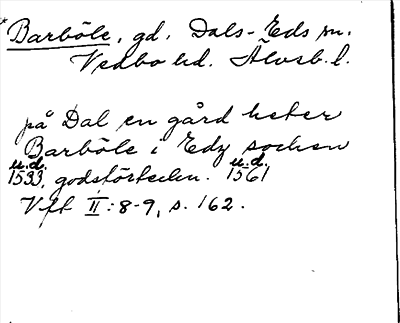 Barböle, gd, Dals-Eds sn.
Vedbo hd. Älvsb. l.
på Dal en gård heter
Barböle i Edz sochen
u.d. u.d.
1533, godsförteckn. 1561
Vft II:8-9, s. 162.